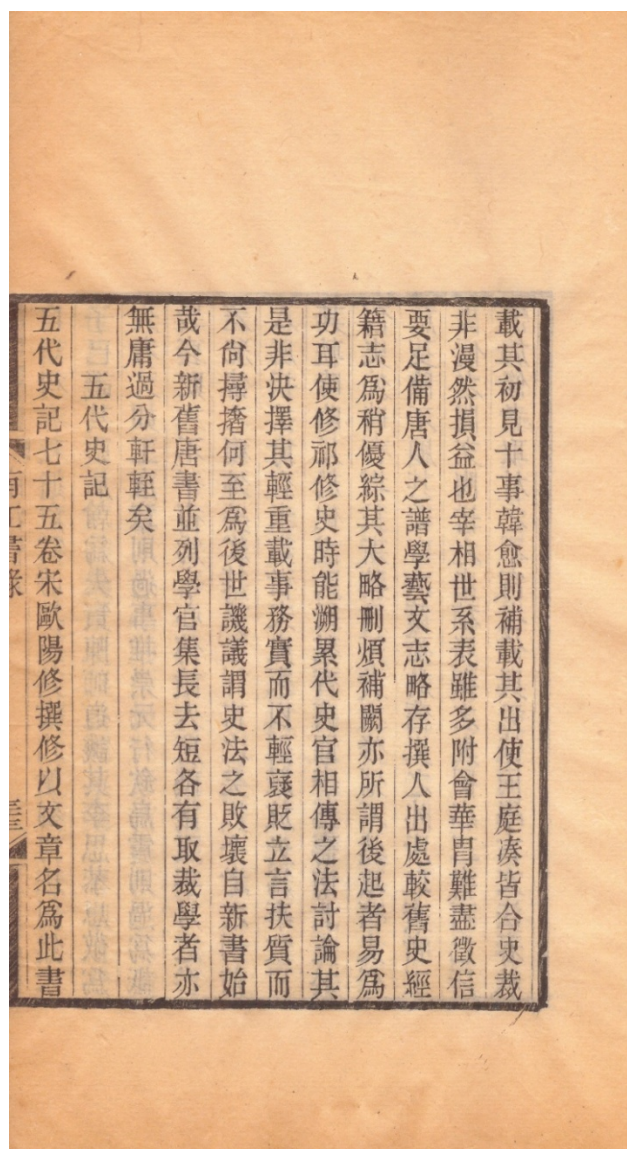 載其初見十事韓愈則補載其出使王庭湊皆合史裁
非漫然損益也宰相世系表雖多附會華胄難盡徵信
要足備唐人之譜學藝文志略存撰人出處較舊史經
籍志爲稍優綜其大略刪煩補闕亦所謂後起者易爲
功耳使修祁修史時能溯累代史官相傳之法討論其
是非決擇其輕重載事務實而不輕襃貶立言扶質而
不尙撏撦何至爲後世譏議謂史法之敗壞自新書始
哉今新舊唐書並列學官集長去短各有取裁學者亦
無庸過分軒輊矣
五代史記
五代史記七十五卷宋歐陽修撰修以文章名爲此書
南江書錄